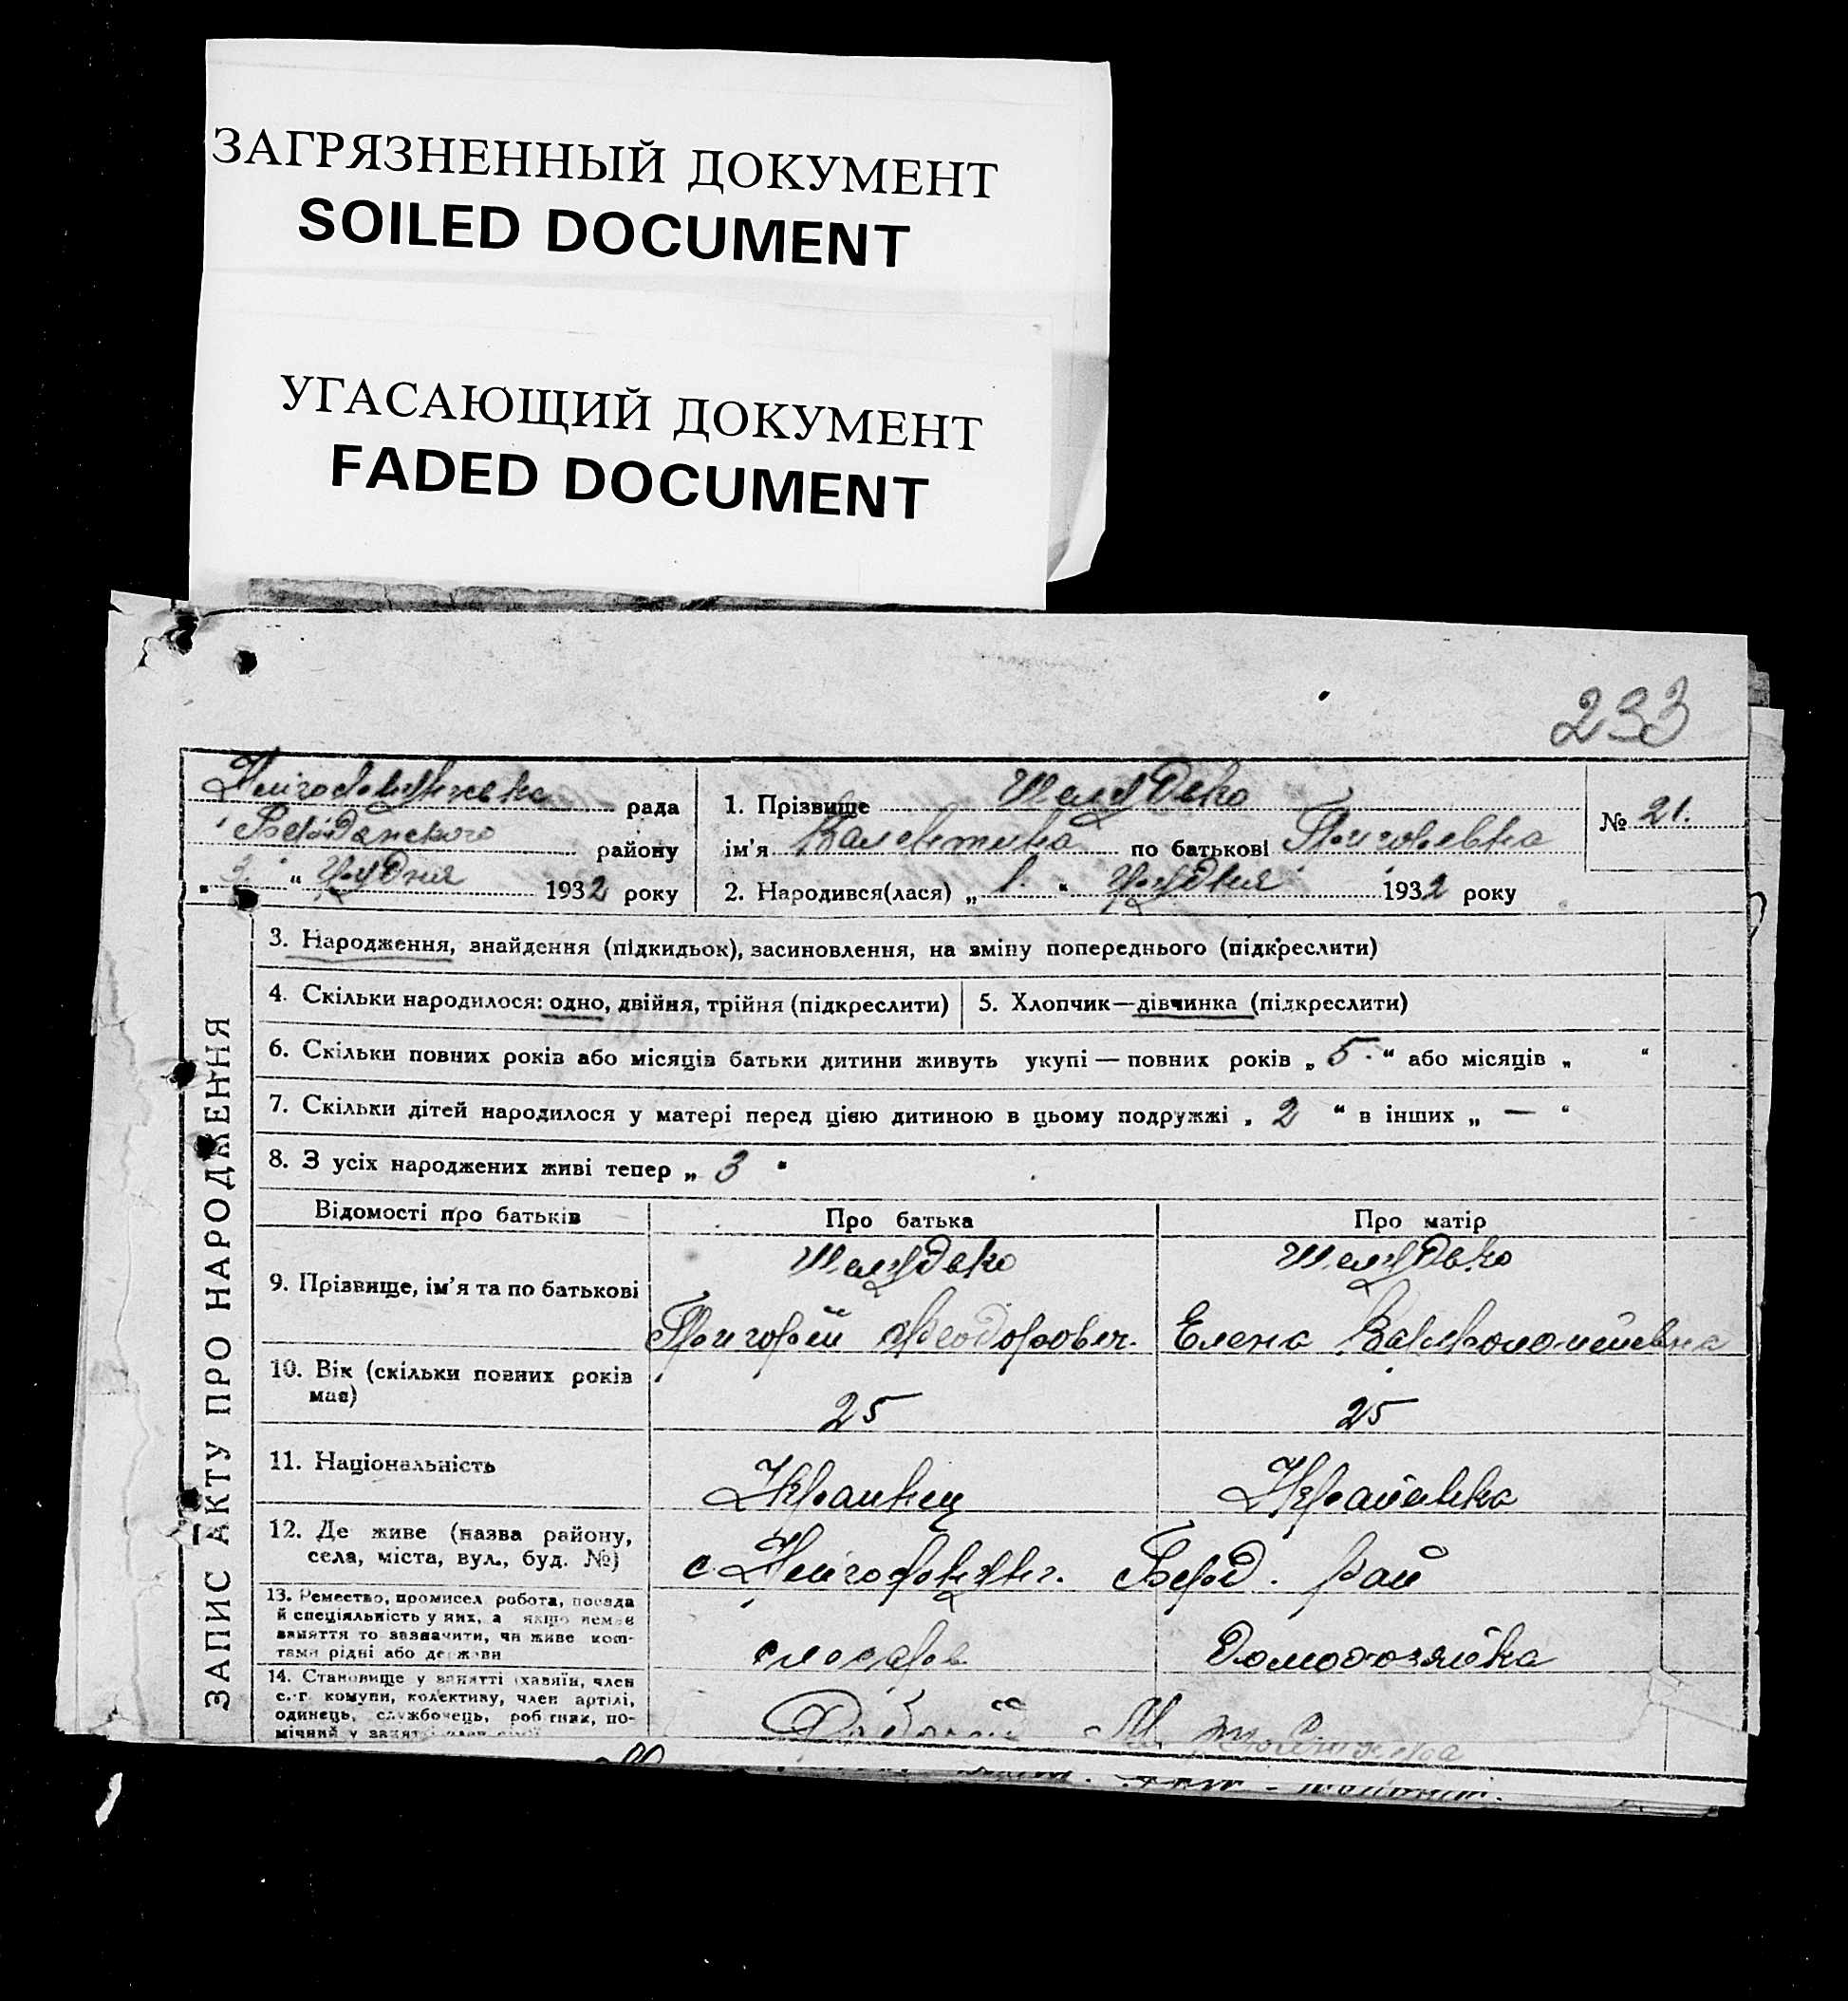 ЗАГРЯЗНЕННЫЙ ДОКУМЕНТ
SOILED DOCUMENT
УГАСАЮЩИЙ ДОКУМЕНТ
FADED DOCUMENT
233
рада
района
району
„ 3. “ Грудня 1932 року
1. Прізвище Шелудько
ім'я Валентина по батькові Григорьевна
№ 21.
2. Народився(лася) „ 1. “ Грудня 1932 року
ЗАПИС АКТУ ПРО НАРОДЖЕННЯ
3. Народження, знайдення (підкидьок), засиновлення, на зміну попереднього (підкреслити)
4. Скільки народилося: одно, двійня, трійня (підкреслити)
5. Хлопчик—дівчинка (підкреслити)
6. Скільки повних років або місяців батьки дитини живуть укупі — повних років „ 5. “ або місяців „ “
7. Скільки дітей народилося у матері перед цією дитиною в цьому подружжі „ 2 “ в інших „ — “
8. З усіх народжених живі тепер „ 3 “
Відомості про батьків
Про батька
Про матір
9. Прізвище, ім'я та по батькові
Шелудько
Григорій Феодорович.
Шелудько
Елена Варфоломеевна
10. Вік (скільки повних років
має)
25
25
11. Національність
Украинец
Украинка
12. Де живе (назва району,
села, міста, вул., буд. №)
с. Берд. рай
13. Ремество, промисел робота, посада
й спеціяльність у них, а якщо немає
заняття то зазначити, чи живе кош-
тами рідні або держави
слесарь
Домохозяйка
14. Становище у занятті (хазяїн, член
с.-г. комуни, колективу, член артілі,
одинець, службовець, робітник, по-
мічний у занят